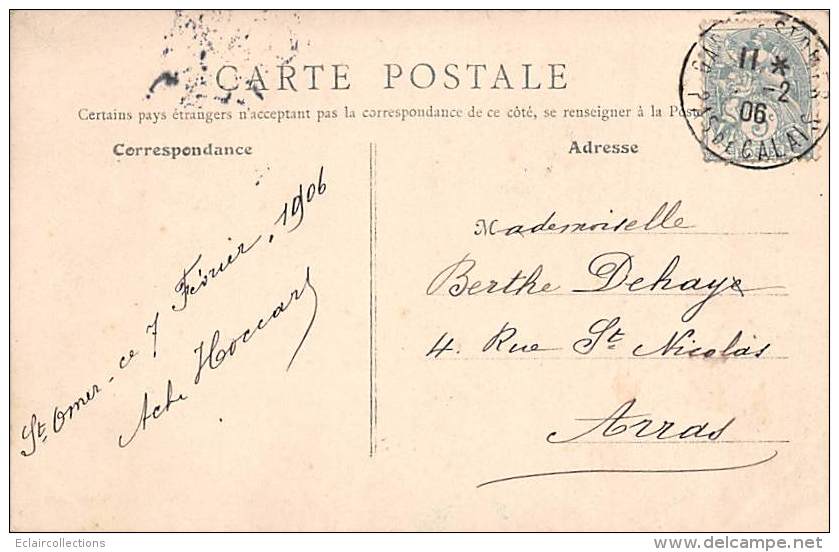 CARTE POSTALE
Certains pays étrangers n'acceptant pas la correspondance de ce côté, se renseigner à la Poste
Correspondance
Adresse
11 *
-2
06
PAS DE CALAIS
5c
St Omer - ce 7 Février, 1906
Ach. Hoccart
Mademoiselle
Berthe Dehaye
4. Rue St Nicolas
Arras
Eclaircollections
www.delcampe.net